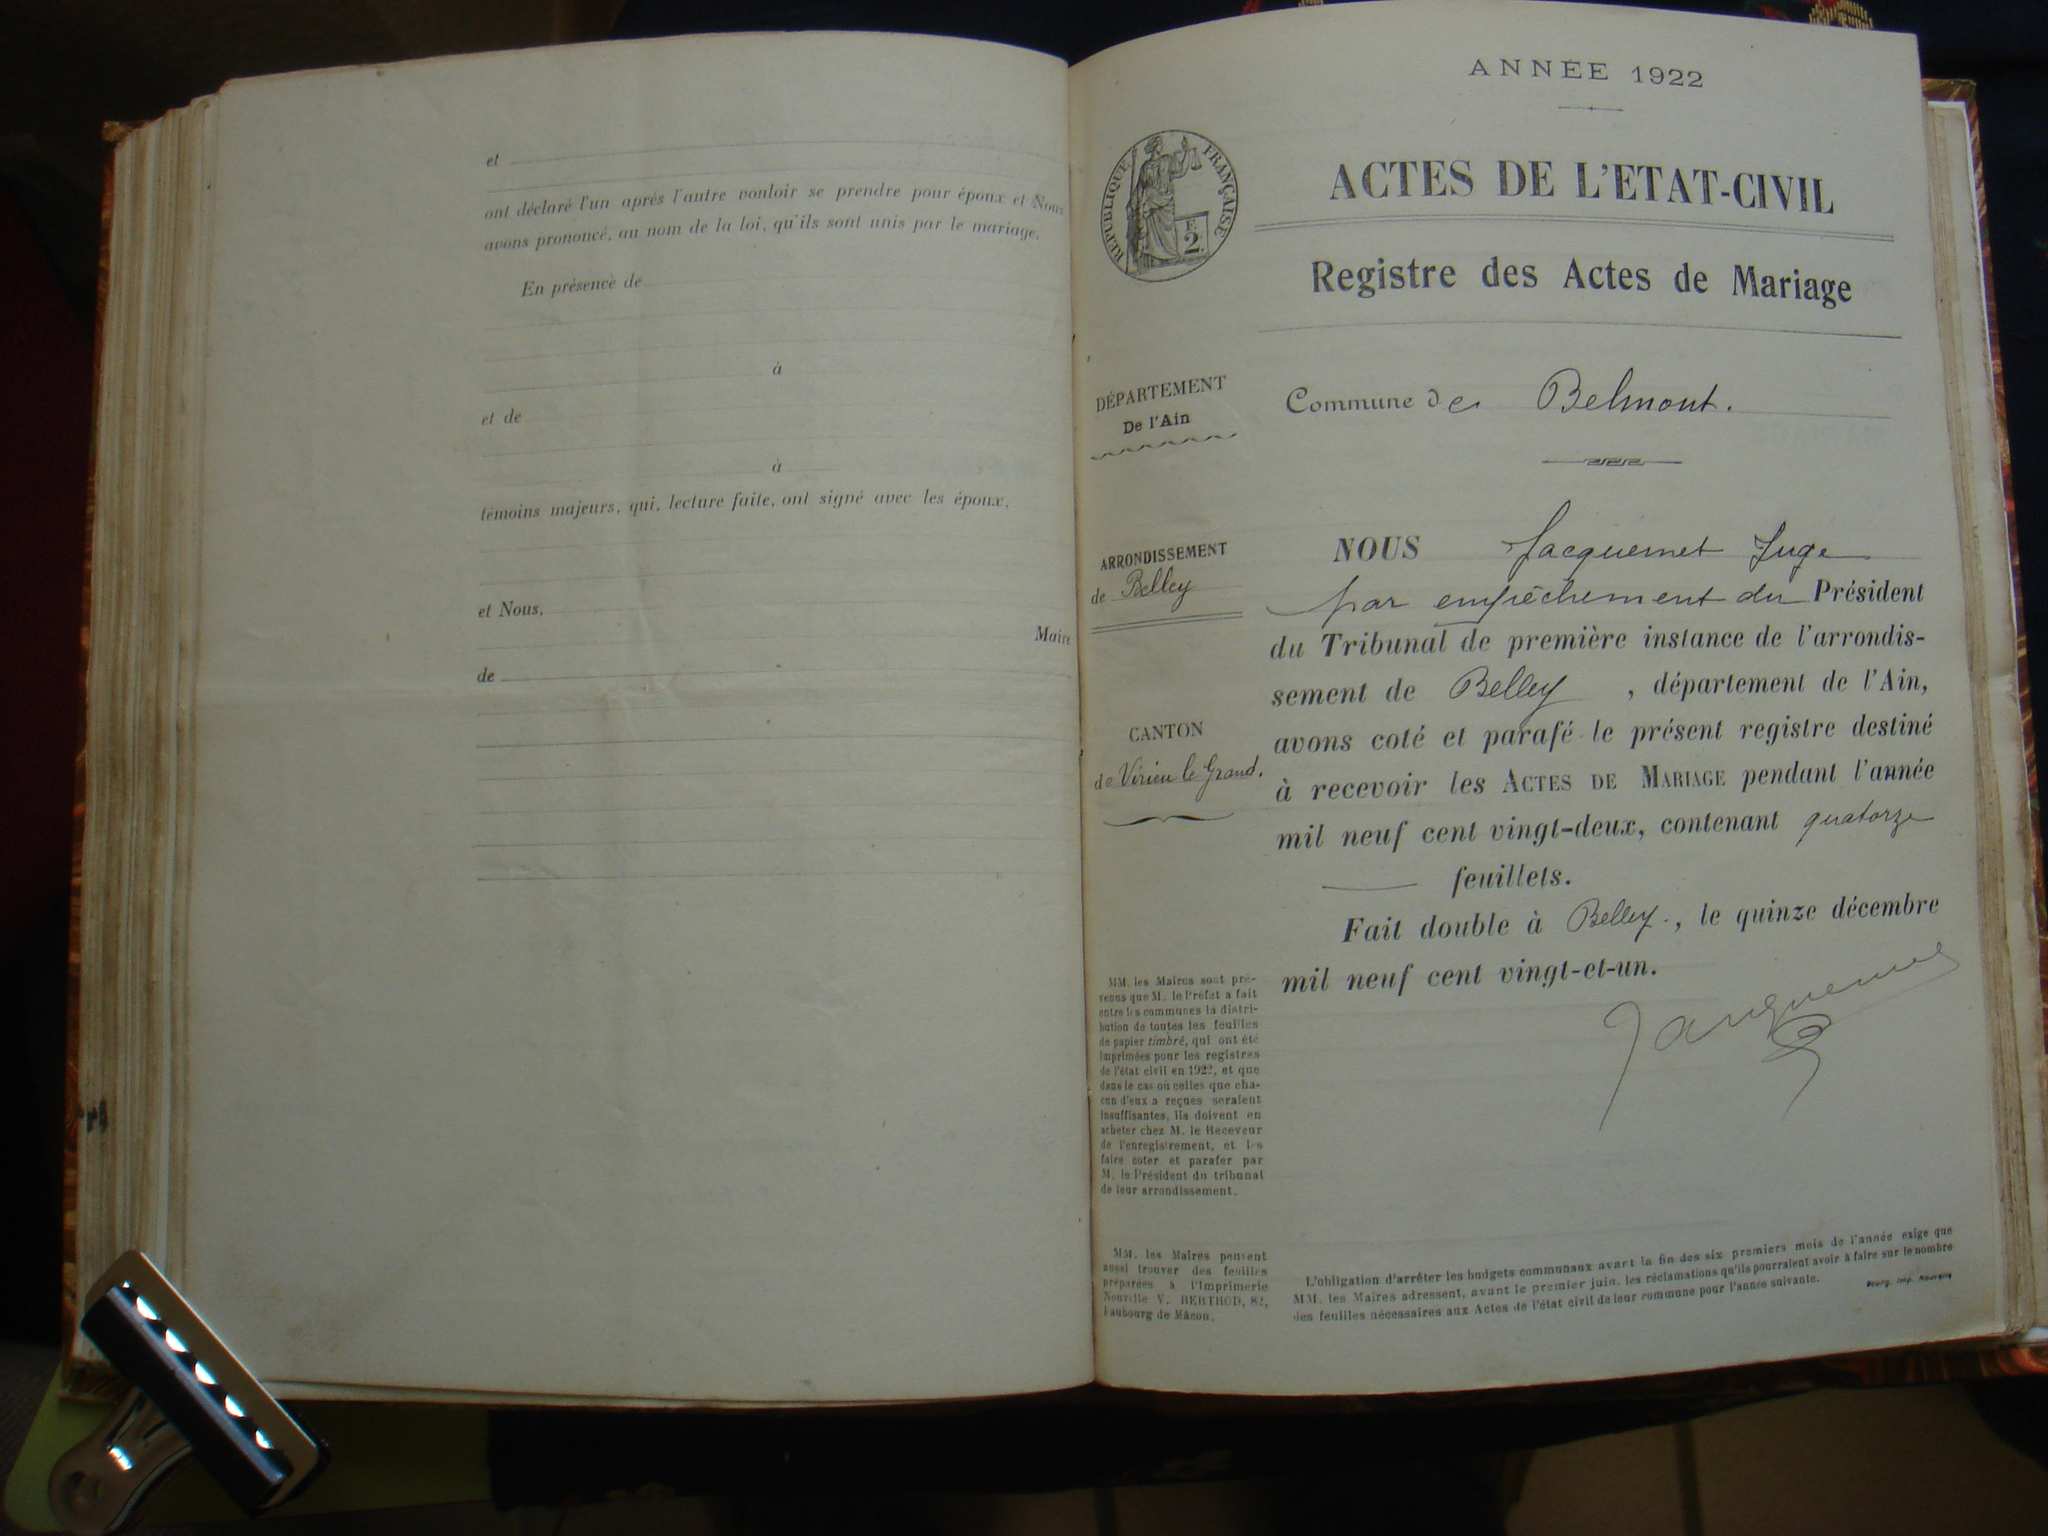 et
ont déclaré l'un après l'autre vouloir se prendre pour époux et Nous
avons prononcé, au nom de la loi, qu'ils sont unis par le mariage.
En présence de
à
et de
à
témoins majeurs, qui, lecture faite, ont signé avec les époux,
et Nous,
Maire
de
ANNÉE 1922
RÉPUBLIQUE FRANÇAISE
2F
ACTES DE L'ETAT-CIVIL
Registre des Actes de Mariage
DÉPARTEMENT
De l'Ain
Commune de Belmont.
ARRONDISSEMENT
de Belley
CANTON
de Virieu le Grand.
NOUS Jacquemet Juge
par empêchement du Président
du Tribunal de première instance de l'arrondis-
sement de Belley, département de l'Ain,
avons coté et parafé le présent registre destiné
à recevoir les ACTES DE MARIAGE pendant l'année
mil neuf cent vingt-deux, contenant quatorze
feuillets.
Fait double à Belley., le quinze décembre
mil neuf cent vingt-et-un.
Jacquemet
MM. les Maires sont pré-
venus que M. le Préfet a fait
entre les communes la distri-
bution de toutes les feuilles
de papier timbré, qui ont été
imprimées pour les registres
de l'état civil en 1922, et que
dans le cas où celles que cha-
cun d'eux a reçues seraient
insuffisantes, ils doivent en
acheter chez M. le Receveur
de l'enregistrement, et les
faire coter et parafer par
M. le Président du tribunal
de leur arrondissement.
MM. les Maires peuvent
aussi trouver des feuilles
préparées à l'Imprimerie
Nouvelle V. BERTHOD, 82,
Faubourg de Mâcon.
L'obligation d'arrêter les budgets communaux avant la fin des six premiers mois de l'année exige que
MM. les Maires adressent, avant le premier juin, les réclamations qu'ils pourraient avoir à faire sur le nombre
des feuilles nécessaires aux Actes de l'état civil de leur commune pour l'année suivante.
Bourg, Imp. Nouvelle